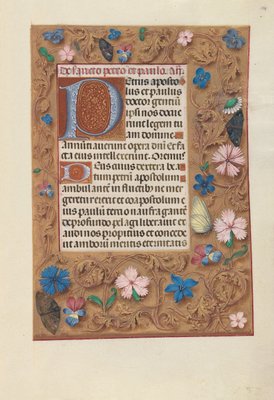 De sancto petro et paulo. Añ.
Petrus aposto
lus et paulus
doctor gentiũ
ipsi nos docue
runt legem tu
am domine.
Annũciauerunt opera dei et fa
cta eius intellexerunt. Oremus
Deus cuius dextera bea
tum petrũ apostolum
ambulantẽ in fluctib9 ne mer
geretur erexit et coapostolum e
ius paulũ tercio naufragantẽ
de profundo pelagi liberauit ex
audi nos propitius et concede
ut amborũ meritis eternitatis